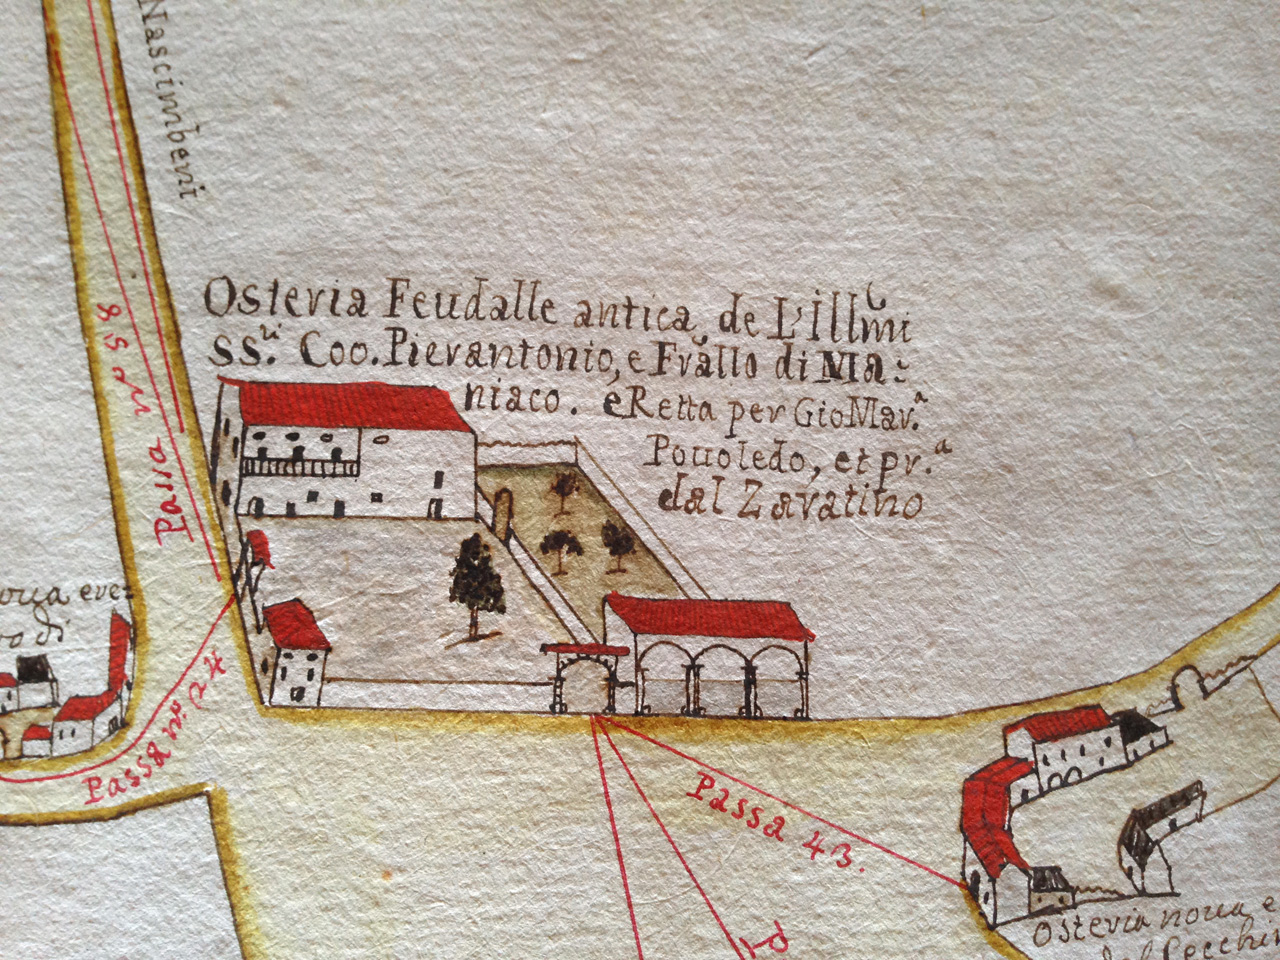 Nascimbeni
Osteria Feudalle antica, de L'Illmi
SS.ri Coo. Pierantonio, e Frallo di Ma=
niaco. è Retta per Gio Mar.a
Pouoledo, et pr.a
dal Zavatino
Passa no 58
Passa no. 24
Passa 43.
P
Osteria noua e
dal Cecchin